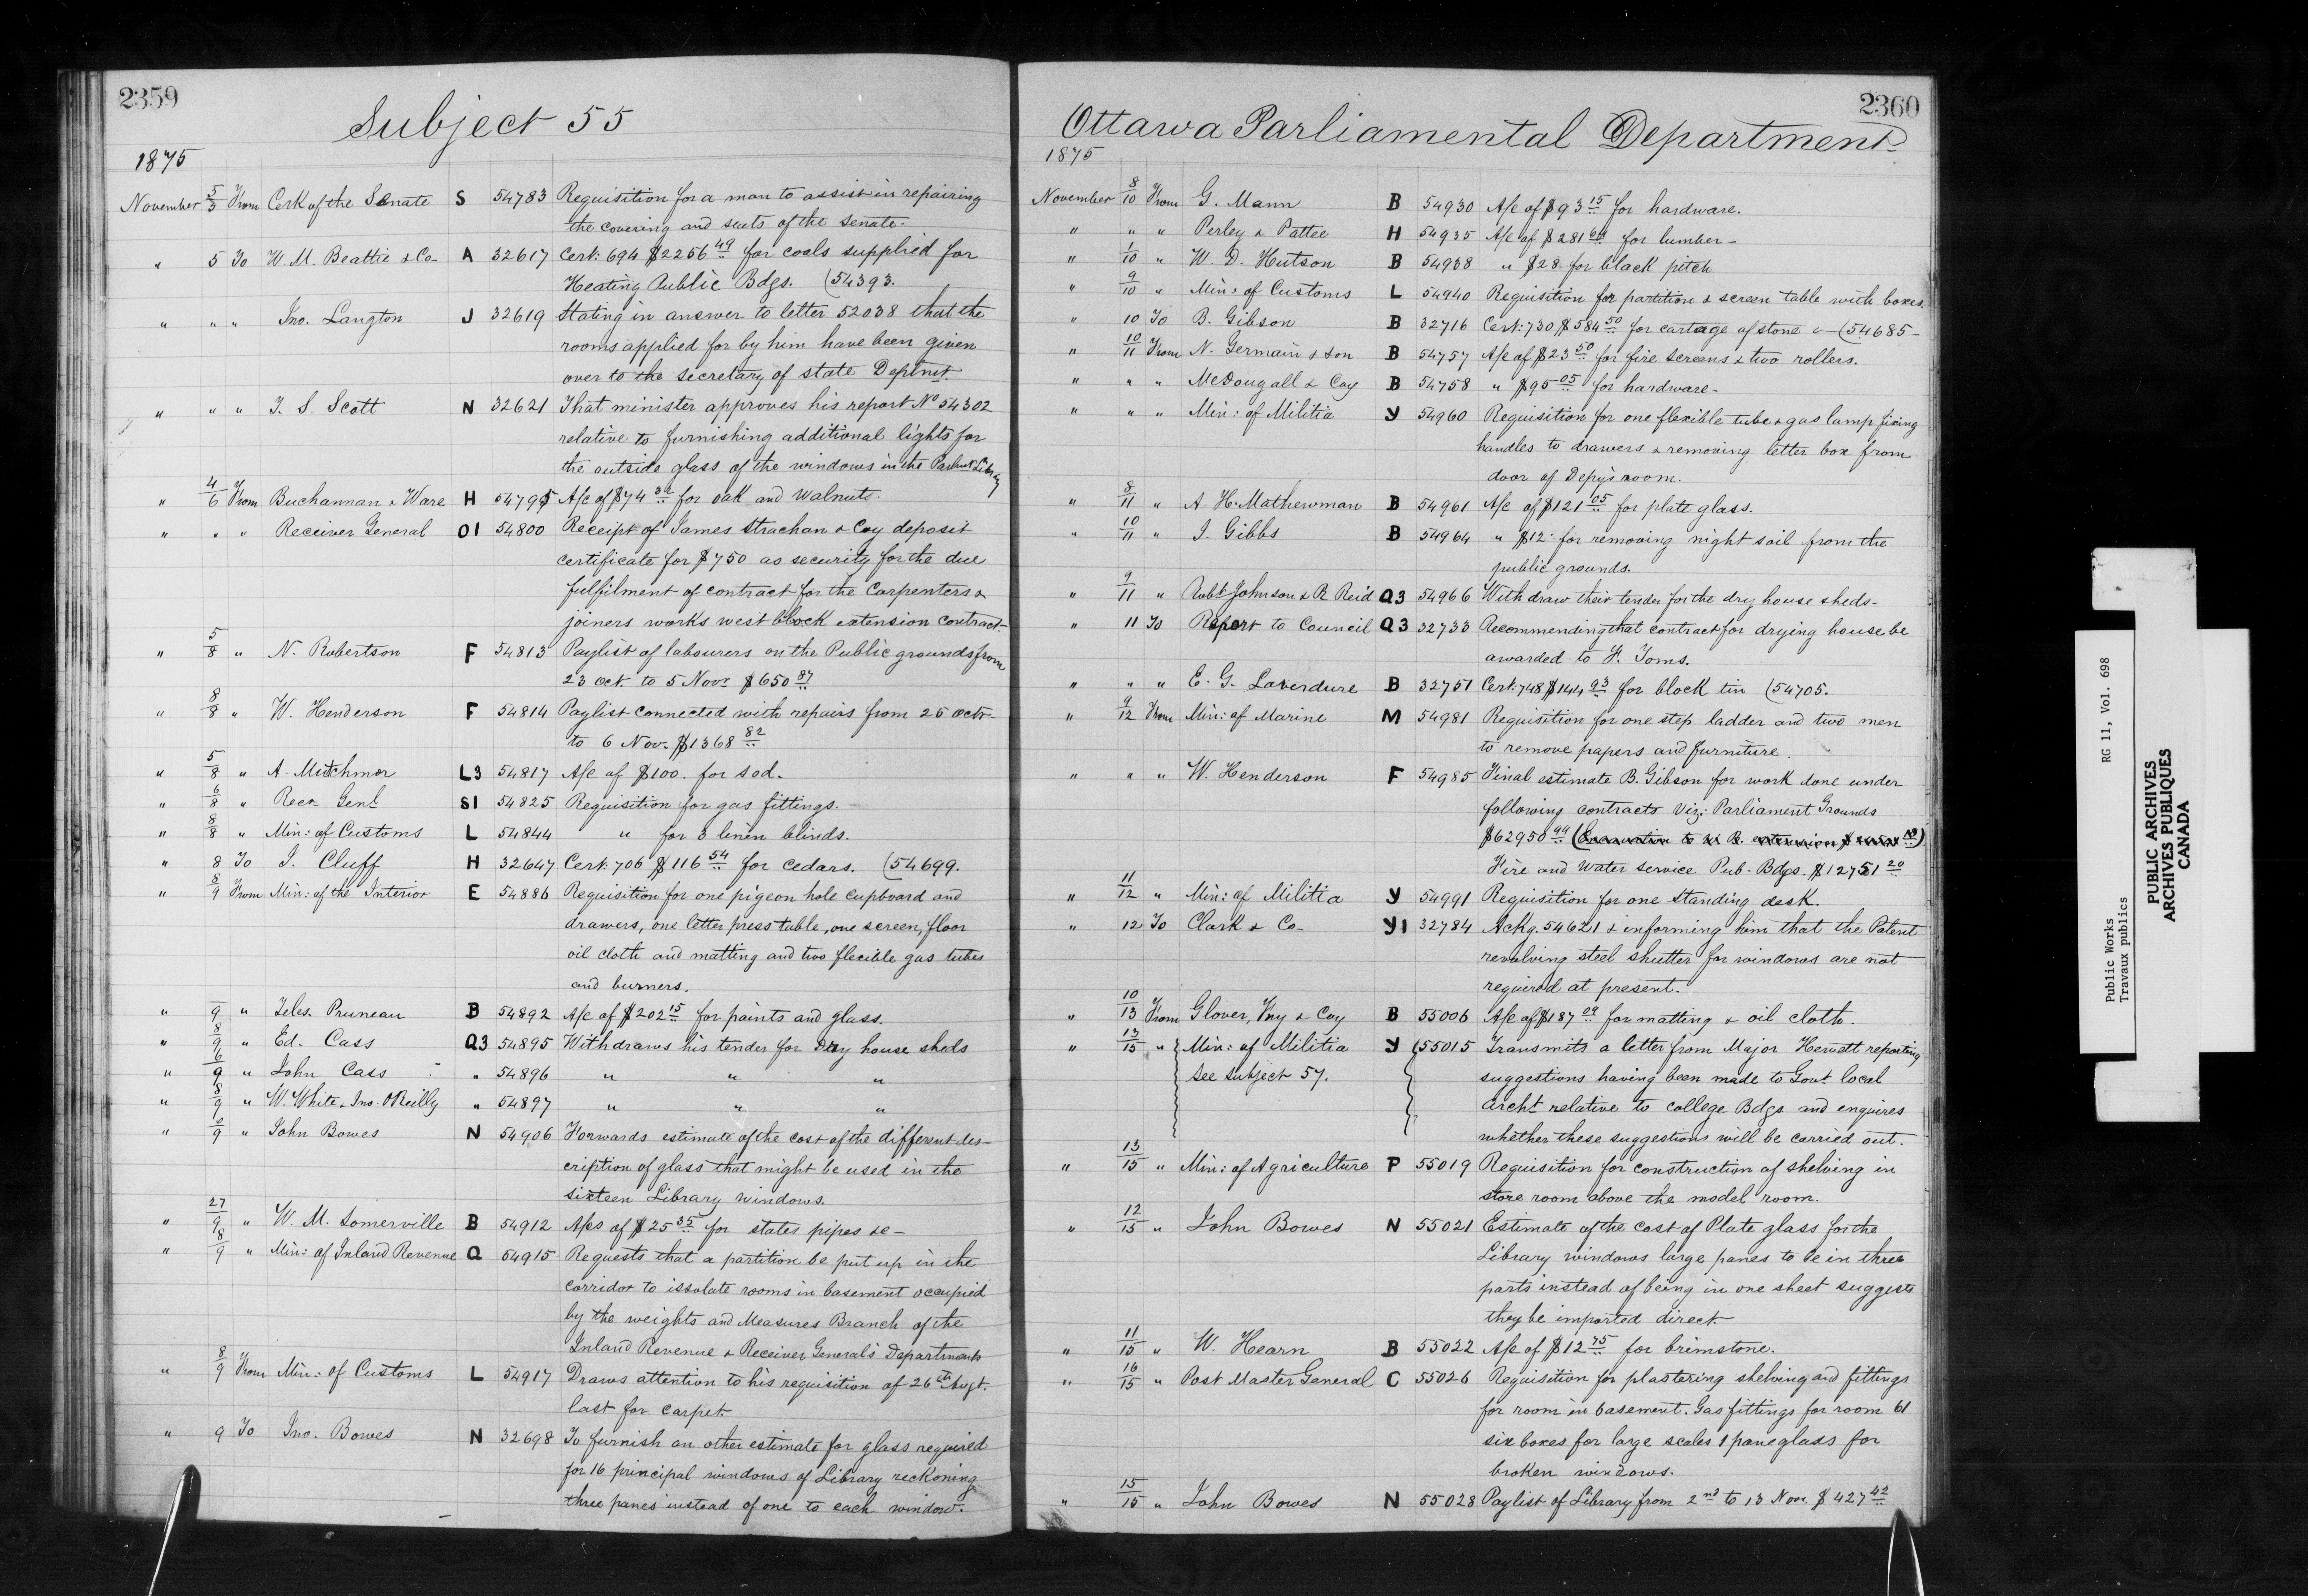 2359
Subject 55
1875
November 5/5 From Cerk of the Senate S 54783 Requisition for a man to assist in repairing
the covering and seats of the Senate.
" 5 To W. M. Beattie & Co A 32617 Cert: 694 $2256 49 for coals supplied for
Heating Public Bdgs. (54393.
" " " Jno. Langton J 32619 Stating in answer to letter 52038 that the
rooms applied for by him have been given
over to the Secretary of State Deptmt.
" " " T. S. Scott N 32621 That minister approves his report No 54302
relative to furnishing additional lights for
the outside glass of the windows in the Parlmt Library
" 4/6 From Buchannan & Ware H 54795 A/c of $74 for oak and walnuts.
" " " Receiver General O1 54800 Receipt of James Strachan & Coy deposit
certificate for $750 as security for the due
fulfilment of contract for the Carpenters &
joiners works west block extension contract.
" 5/8 " N. Robertson F 54813 Paylist of labourers on the Public grounds from
23 Oct. to 5 Novr $650 87
" 8/8 " W. Henderson F 54814 Paylist connected with repairs from 25 Octr
to 6 Nov. $1368 82
" 5/8 " A. Mutchmor L3 54817 A/c of $100. for sod.
" 6/8 " Recr Genl S1 54825 Requisition for gas fittings.
" 8/8 " Min: of Customs L 54844 " for 3 linen blinds.
" 8 To J. Cluff H 32647 Cert: 706 $116 54 for Cedars. (54699.
" 8/9 From Min: of the Interior E 54886 Requisition for one pigeon hole cupboard and
drawers, one letter press table, one screen, floor
oil cloth and matting and two flexible gas tubes
and burners.
" 9 " Teles. Pruneau B 54892 A/c of $202 15 for paints and glass.
" 8/9 " Ed. Cass Q3 54895 Withdraws his tender for Dry house sheds
" 6/9 " John Cass " 54896 " " "
" 8/9 " W. White & Jno. O'Reilly " 54897 " " "
" /9 " John Bowes N 54906 Forwards estimate of the cost of the different des-
cription of glass that might be used in the
sixteen Library windows.
" 27/9 " W. M. Somerville B 54912 A/cs of $25 35 for states pipes &c-
" 8/9 " Min: of Inland Revenue Q 54915 Requests that a partition be put up in the
corridor to issolate rooms in basement occupied
by the weights and Measures Branch of the
Inland Revenue & Receiver General's Departments
" 8/9 From Min: of Customs L 54917 Draws attention to his requisition of 26th Augt.
last for carpet.
" 9 To Jno. Bowes N 32698 To furnish an other estimate for glass required
for 16 principal windows of Library reckoning
three panes instead of one to each window.
2360
Ottawa Parliamental Department
1875
November 8/10 From G. Mann B 54930 A/c of $93 15 for hardware.
" " " Perley & Pattee H 54935 A/c of $281 for lumber-
" 1/10 " W. D. Hutson B 54938 " $28 for black pitch
" 9/10 " Min: of Customs L 54940 Requisition for partition & screen table with boxes.
" 10 To B. Gibson B 32716 Cert: 730 $584 50 for cartage of stone &- (54685-
" 10/11 From N. Germain & Son B 54757 A/c of $23 50 for fire screens & two rollers.
" " " McDougall & Coy B 54758 " $95 05 for hardware-
" " " Min: of Militia Y 54960 Requisition for one flexible tube & gas lamp fixing
handles to drawers & removing letter box from
door of Depy's room.
" 8/11 " A. H. Mathewman B 54961 A/c of $121 05 for plate glass.
" 10/11 " J. Gibbs B 54964 " $12. for removing night soil from the
public grounds.
" 9/11 " Robt Johnson & R Reid Q3 54966 Withdraw their tender for the dry house sheds-
" 11 To Report to Council Q3 32733 Recommending that contract for drying house be
awarded to F. Toms.
" " " E. G. Laverdure B 32751 Cert: 748 $144 93 for block tin (54705.
" 9/12 From Min: of Marine M 54981 Requisition for one step ladder and two men
to remove papers and furniture.
" " " W. Henderson F 54985 Final estimate B. Gibson for work done under
following contracts viz: Parliament Grounds
$62950 99 (Excavation to W. B. extension $
Fire and Water service Pub. Bdgs. $12751 20
" 11/12 " Min: of Militia Y 54991 Requisition for one Standing desk.
" 12 To Clark & Co- Y1 32784 Ackg. 54621 & informing him that the Patent
revolving steel shutter for windows are not
required at present.
" 10/13 From Glover, Fry & Coy B 55006 A/c of $187 09 for matting & oil cloth.
" 13/15 " Min: of Militia Y 55015 Transmits a letter from Major Hewett reporting
See subject 57. suggestions having been made to Govt local
Archt relative to college Bdgs and enquires
whether these suggestions will be carried out.
" 13/15 " Min: of Agriculture P 55019 Requisition for construction of shelving in
store room above the model room.
" 12/15 " John Bowes N 55021 Estimate of the cost of Plate glass for the
Library windows large panes to be in three
parts instead of being in one sheet suggests
they be imported direct
" 11/15 " W. Hearn B 55022 A/c of $12 75 for brimstone.
" 16/15 " Post Master General C 55026 Requisition for plastering shelving and fittings
for room in basement. Gas fittings for room 61
six boxes for large scales 1 pane glass for
broken windows.
" 15/15 " John Bowes N 55028 Paylist of Library from 2nd to 13 Nov. $427 42
Public Works RG 11, Vol. 698
Travaux publics
PUBLIC ARCHIVES
ARCHIVES PUBLIQUES
CANADA